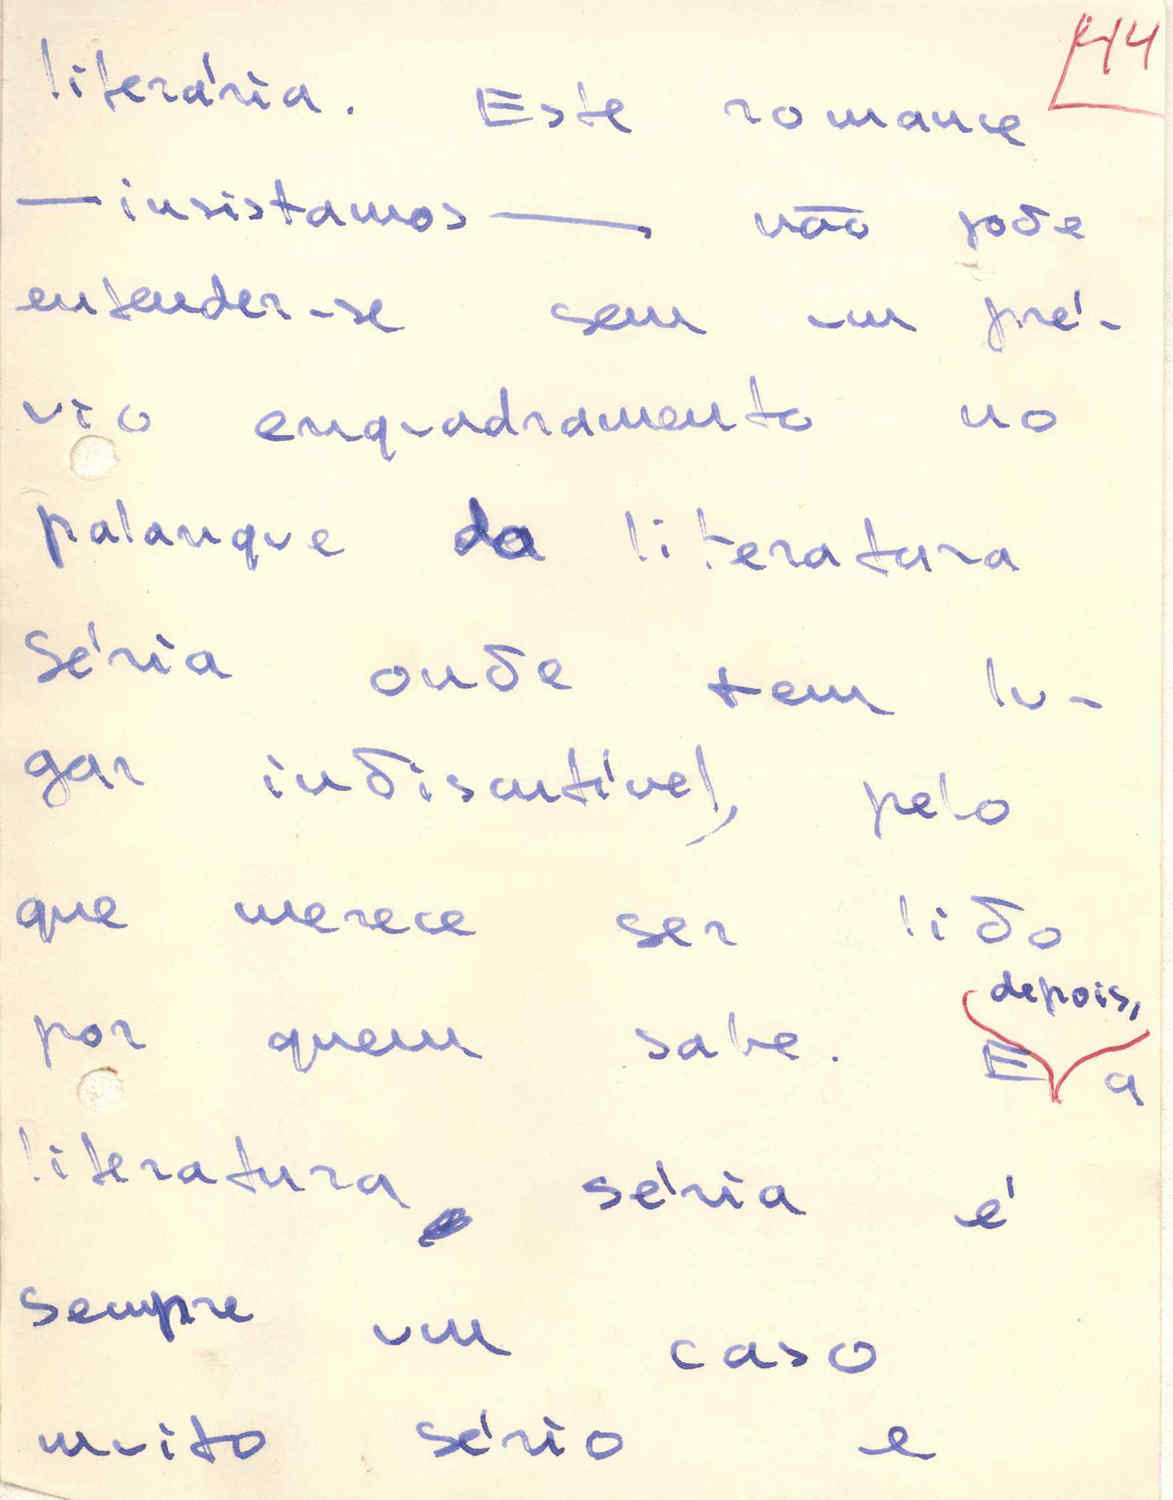 44
literária. Este romance
— insistamos — não pode
entender-se sem um pré-
vio enquadramento no
palanque da literatura
séria onde tem lu-
gar indiscutível, pelo
que merece ser lido
por quem sabe. E depois, a
literatura séria é
sempre um caso
muito sério e